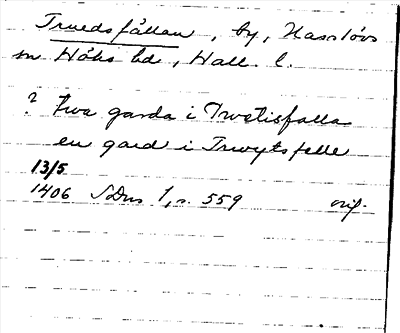 Truedsfållan, by, Hasslövs
sn Höks hd, Hall. l.
? twa garda i Trwetisfalla
en gard i Trwytsfelle
13/5
1406 SDns 1, s. 559 orig.